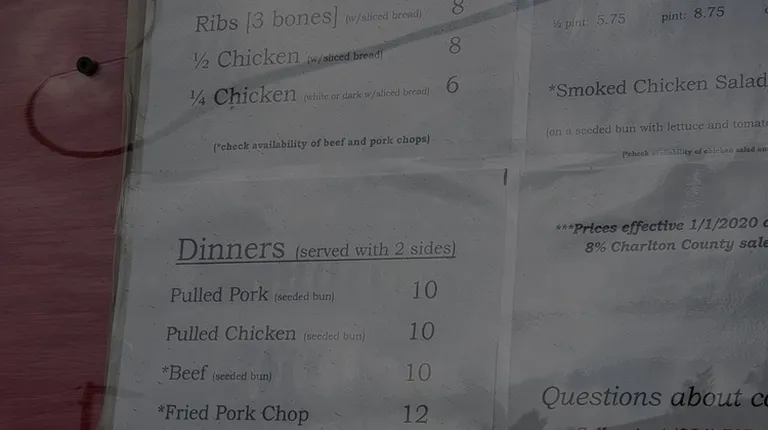 Ribs [3 bones] (w/sliced bread) 8
½ Chicken (w/sliced bread) 8
¼ Chicken (white or dark w/sliced bread) 6
(*check availability of beef and pork chops)
Dinners (served with 2 sides)
Pulled Pork (seeded bun) 10
Pulled Chicken (seeded bun) 10
*Beef (seeded bun) 10
*Fried Pork Chop 12
½ pint: 5.75 pint: 8.75
*Smoked Chicken Salad
(on a seeded bun with lettuce and tomato
(*check availability of chicken salad
***Prices effective 1/1/2020
8% Charlton County sale
Questions about